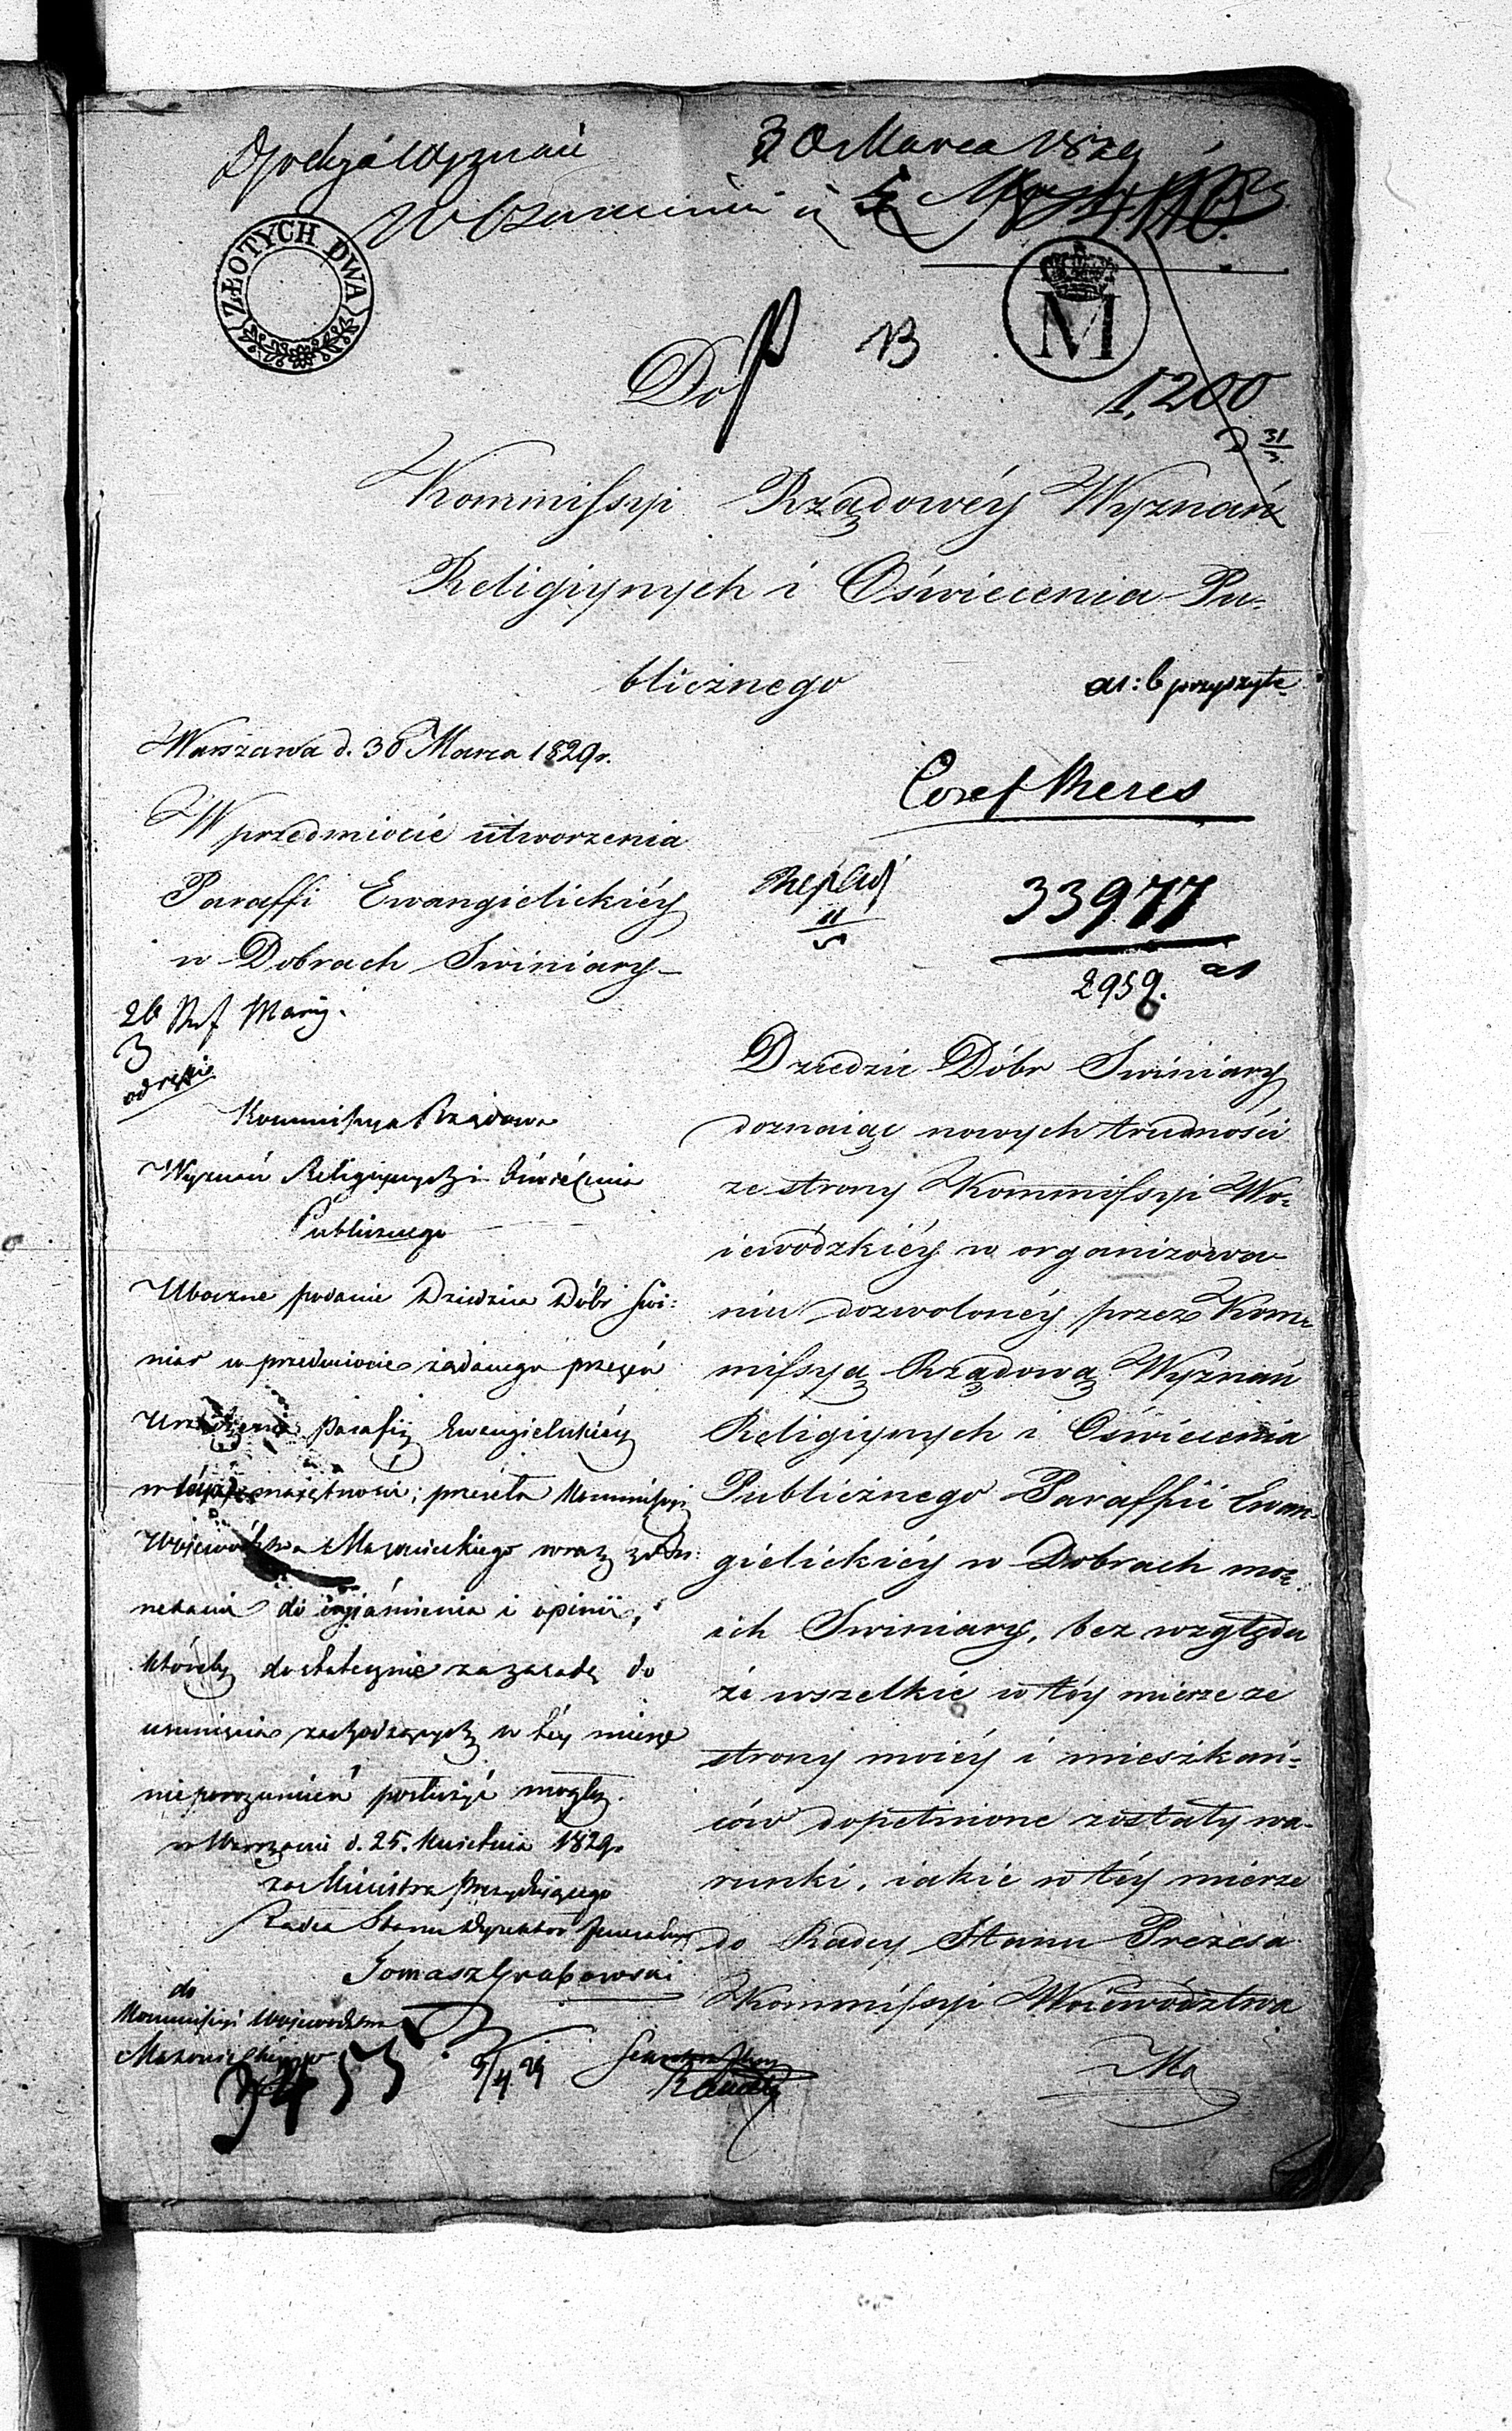 30 Marca 1829
ZŁOTYCH DWA
M
Do
B
1,200
31/3
Kommissyi Rządowéy Wyznań
Religiynych i Oświecenia Pu-
blicznego
Warszawa d. 30 Marca 1829 r.
W przedmiocie utworzenia
Paraffi Ewangielickiéy
w Dobrach Swiniary
33977
2959.
Kommissya Rządowa
Wyznań Religiynych i Oświécenia
Publicznego
Uboczne podanie Dziedzica Dóbr Swi-
niar w przedmiocie żądanego przezeń
Urządzenia Parafiy Ewangielickiéy
w téyże maiętności; przeséła Kommissyi
Województwa Mazowieckiego wraz z
do i opinii,
któréby dostatecznie za zasadę do
usunięcia zachodzących w téy mierze
nieporozumień posłużyć mogły.
w Warszawie d. 25. Kwietnia 1829.
za Ministra Prezyduiącego
Radca Stanu Dyrektor Jeneralny
Tomasz Grabowski
do
Kommissyi Województwa
Mazowieckiego
3455
Dziedzic Dóbr Swiniary
doznaiąc nowych trudności
ze strony Kommissyi Wo-
iewódzkiéy w organizowa-
niu dozwolonéy przez Kom-
missyą Rządową Wyznań
Religiynych i Oświecenia
Publicznego Paraffii Ewan-
gielickiéy w Dobrach mo-
ich Swiniary, bez względu
że wszelkie w téy mierze ze
strony moiéy i mieszkań-
ców dopełnione zostały wa-
runki, iakie w téy mierze
do Radcy Stanu Prezesa
Kommissyi Woiewództwa
Ma